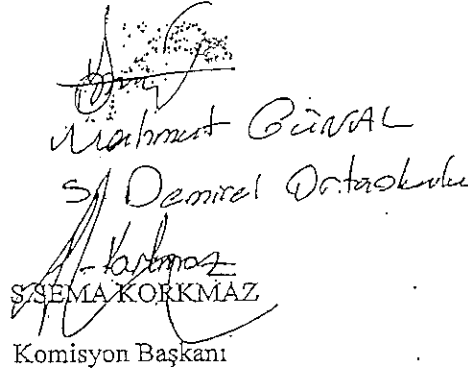 Mahmut GÜNAL
S. Demirel Ortaokulu
Korkmaz
S.SEMA KORKMAZ
Komisyon Başkanı